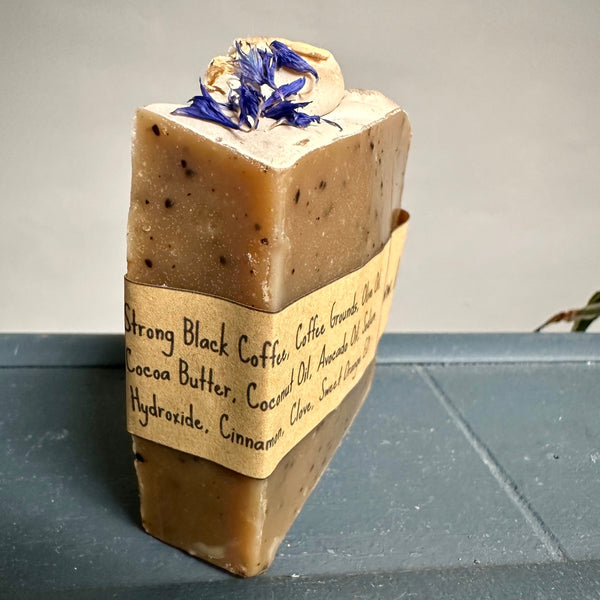 Strong Black Coffee, Coffee Grounds, Olive Oil
Cocoa Butter, Coconut Oil, Avocado Oil, Sodium
Hydroxide, Cinnamon, Clove, Sweet Orange